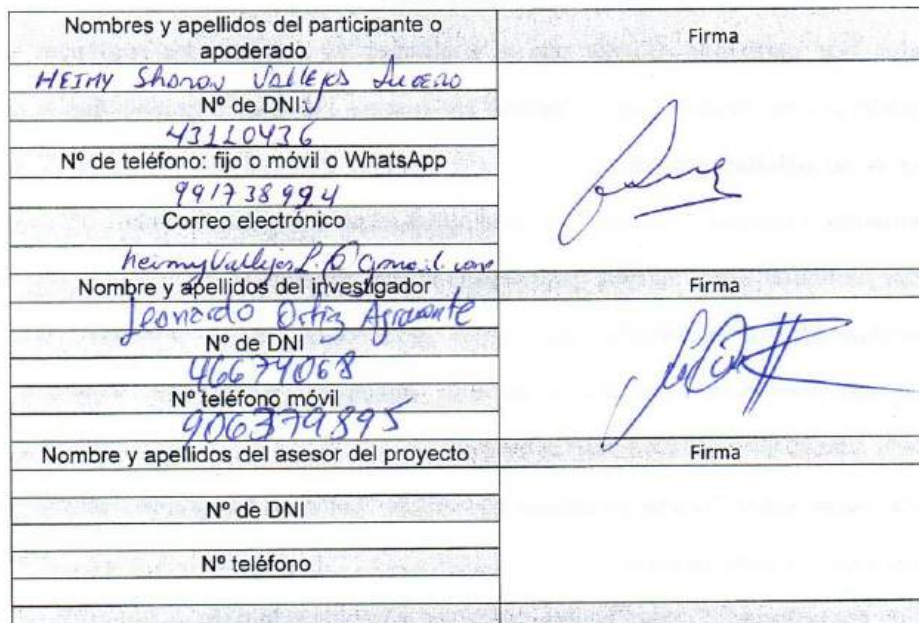 Nombres y apellidos del participante o
apoderado
Firma
HEIMY Sharon Vallejos Lucero
Nº de DNI:
43110436
Nº de teléfono: fijo o móvil o WhatsApp
991738994
Correo electrónico
heimyVallejosL.@gmail.com
Nombre y apellidos del investigador
Firma
Leonardo Ortiz Agramonte
Nº de DNI
46674068
Nº teléfono móvil
906379895
Nombre y apellidos del asesor del proyecto
Firma
Nº de DNI
Nº teléfono